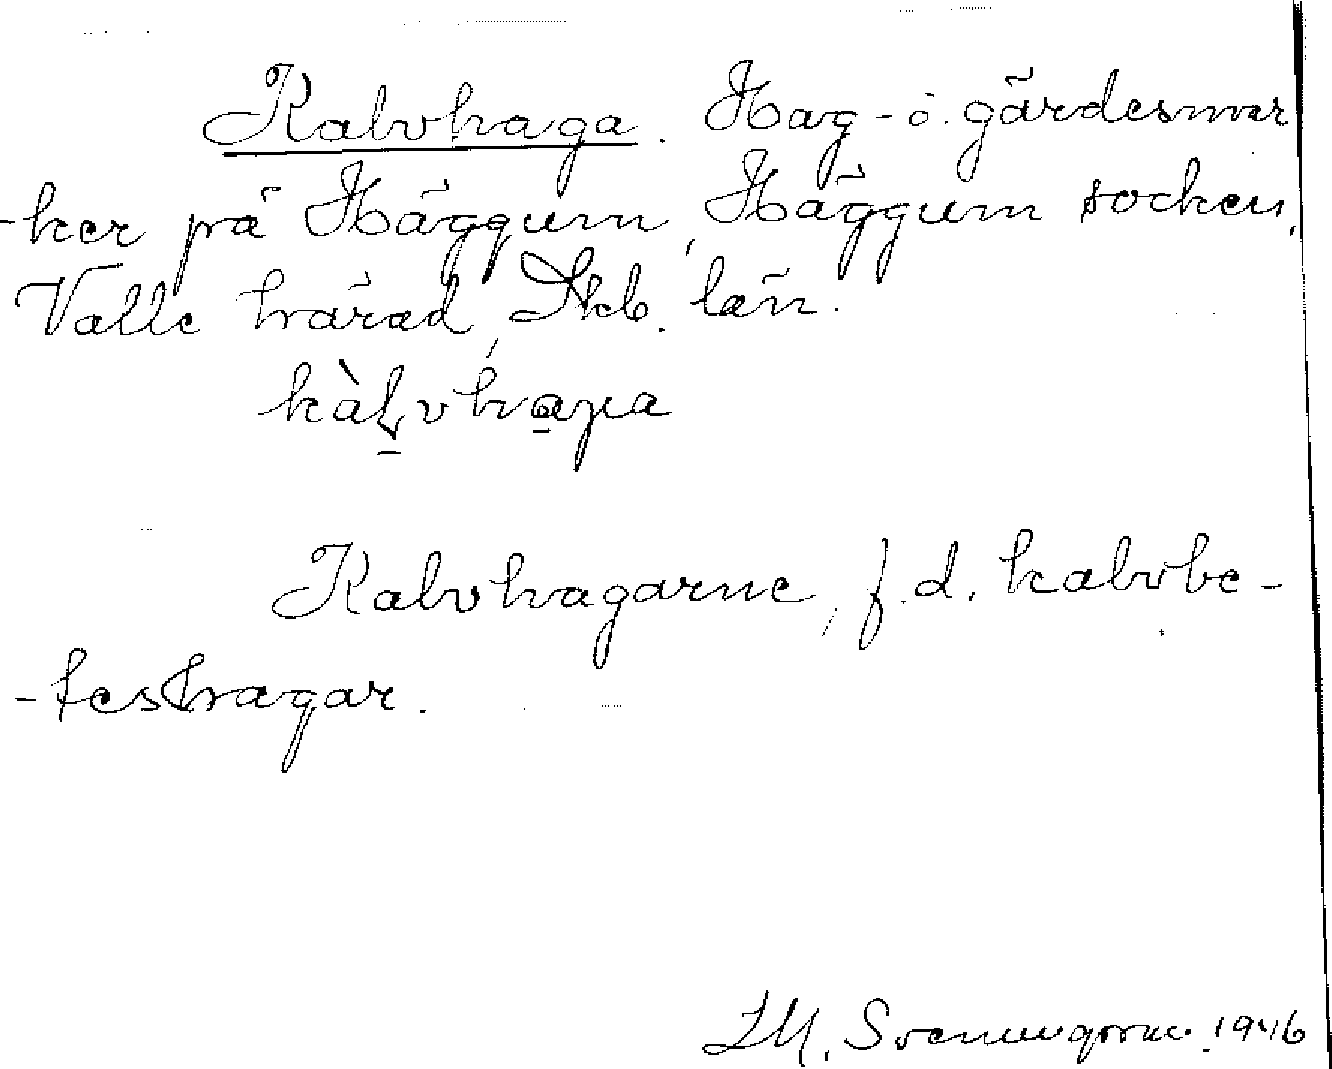 Kalvhaga. Hag- o. gärdesmar
-ker på Häggum, Häggum socken,
Valle härad, Skb. län.
kàLvhaγa
Kalvhagarne, f.d. kalvbe-
-teshagar.
1946